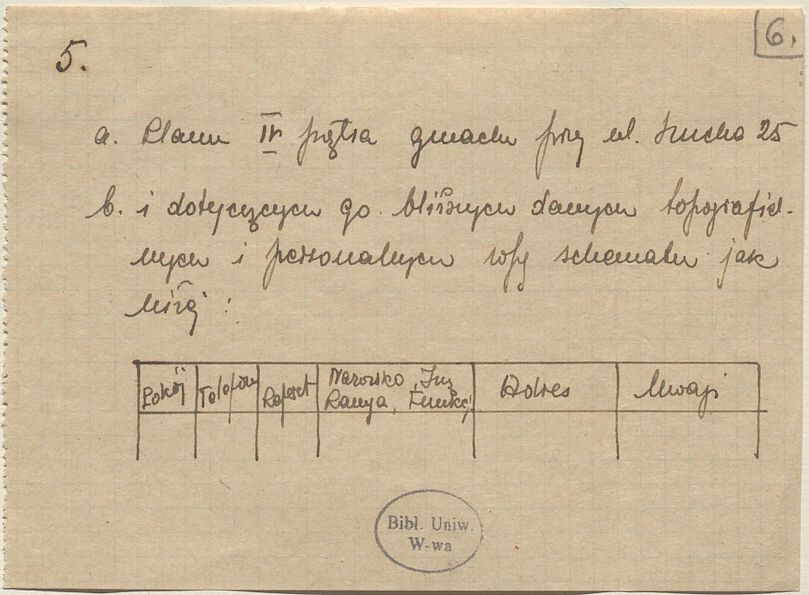 6.
5.
a. Planu IV piętra gmachu przy ul. Szucha 25
b. i dotyczących go bliższych danych topograficz-
nych i personalnych wdg schematu jak
niżej :
Pokój Telefon Referat Nazwisko, Imię Ranga, Funkcj Adres Uwagi
Bibl. Uniw.
W-wa